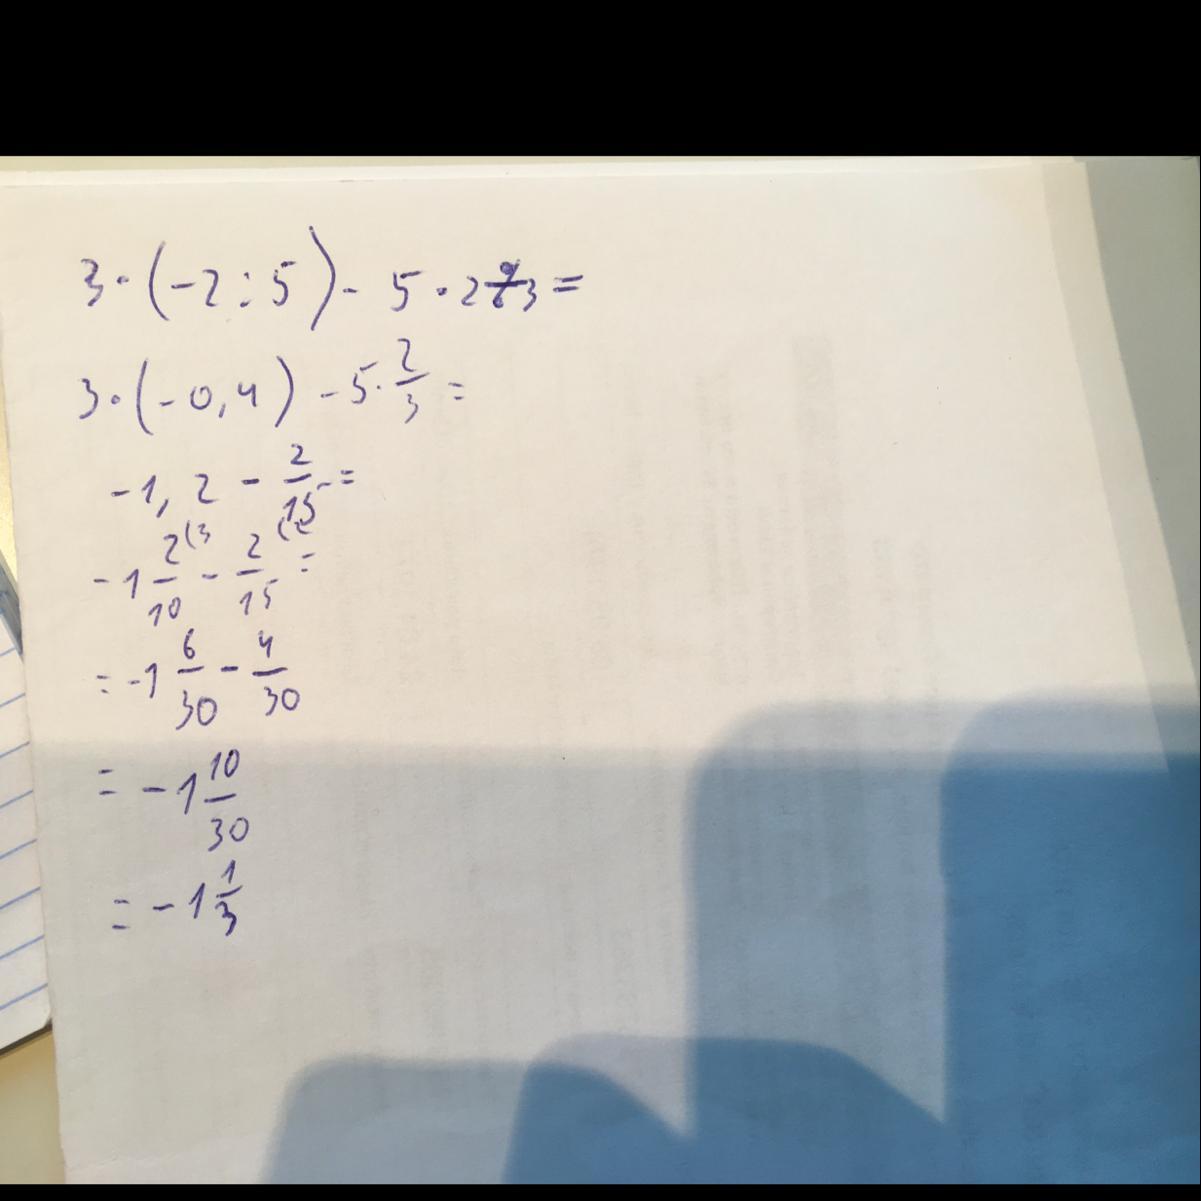 3·(-2:5)- 5·2÷3=
3·(-0,4)-5·2/3=
-1,2-2/15=
-1 2(3/10-2(2/15=
=-1 6/30-4/30
=-1 10/30
=-1 1/3